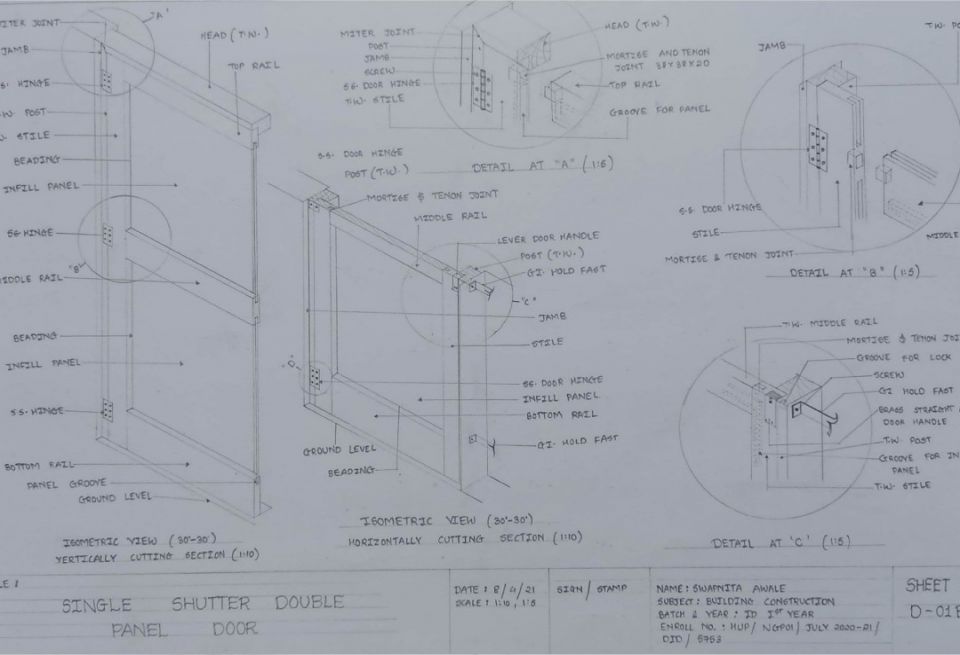 MITER JOINT
"A"
HEAD (T.W.)
JAMB
TOP RAIL
S.S. HINGE
T.W. POST
T.W. STILE
BEADING
INFILL PANEL
SS HINGE
"B"
MIDDLE RAIL
BEADING
INFILL PANEL
S.S. HINGE
BOTTOM RAIL
PANEL GROOVE
GROUND LEVEL
ISOMETRIC VIEW (30°-30°)
VERTICALLY CUTTING SECTION (1:10)
MITER JOINT
POST
JAMB
SCREW
S.S. DOOR HINGE
T.W. STILE
HEAD (T.W.)
MORTISE AND TENON
JOINT 38X38X20
TOP RAIL
GROOVE FOR PANEL
DETAIL AT "A" (1:5)
S.S. DOOR HINGE
POST (T.W.)
MORTISE & TENON JOINT
MIDDLE RAIL
LEVER DOOR HANDLE
POST (T.W.)
G.I. HOLD FAST
"C"
JAMB
STILE
"D"
SS. DOOR HINGE
INFILL PANEL
BOTTOM RAIL
G.I. HOLD FAST
GROUND LEVEL
BEADING
ISOMETRIC VIEW (30°-30°)
HORIZONTALLY CUTTING SECTION (1:10)
T.W. PO
JAMB
S.S. DOOR HINGE
STILE
MORTISE & TENON JOINT
MIDDLE
DETAIL AT "B" (1:5)
T.W. MIDDLE RAIL
MORTISE & TENON JOI
GROOVE FOR LOCK
SCREW
G.I. HOLD FAST
BRASS STRAIGHT
DOOR HANDLE
T.W. POST
GROOVE FOR IN
PANEL
T.W. STILE
DETAIL AT 'C' (1:5)
LE :
SINGLE SHUTTER DOUBLE
PANEL DOOR
DATE : 8/4/21
SCALE : 1:10, 1:5
SIGN / STAMP
NAME : SWAPNITA AWALE
SUBJECT : BUILDING CONSTRUCTION
BATCH & YEAR : ID Iˢᵗ YEAR
ENROLL NO. : HUP/ NGP01/ JULY 2020-21/
DID / 5753
SHEET
D-01